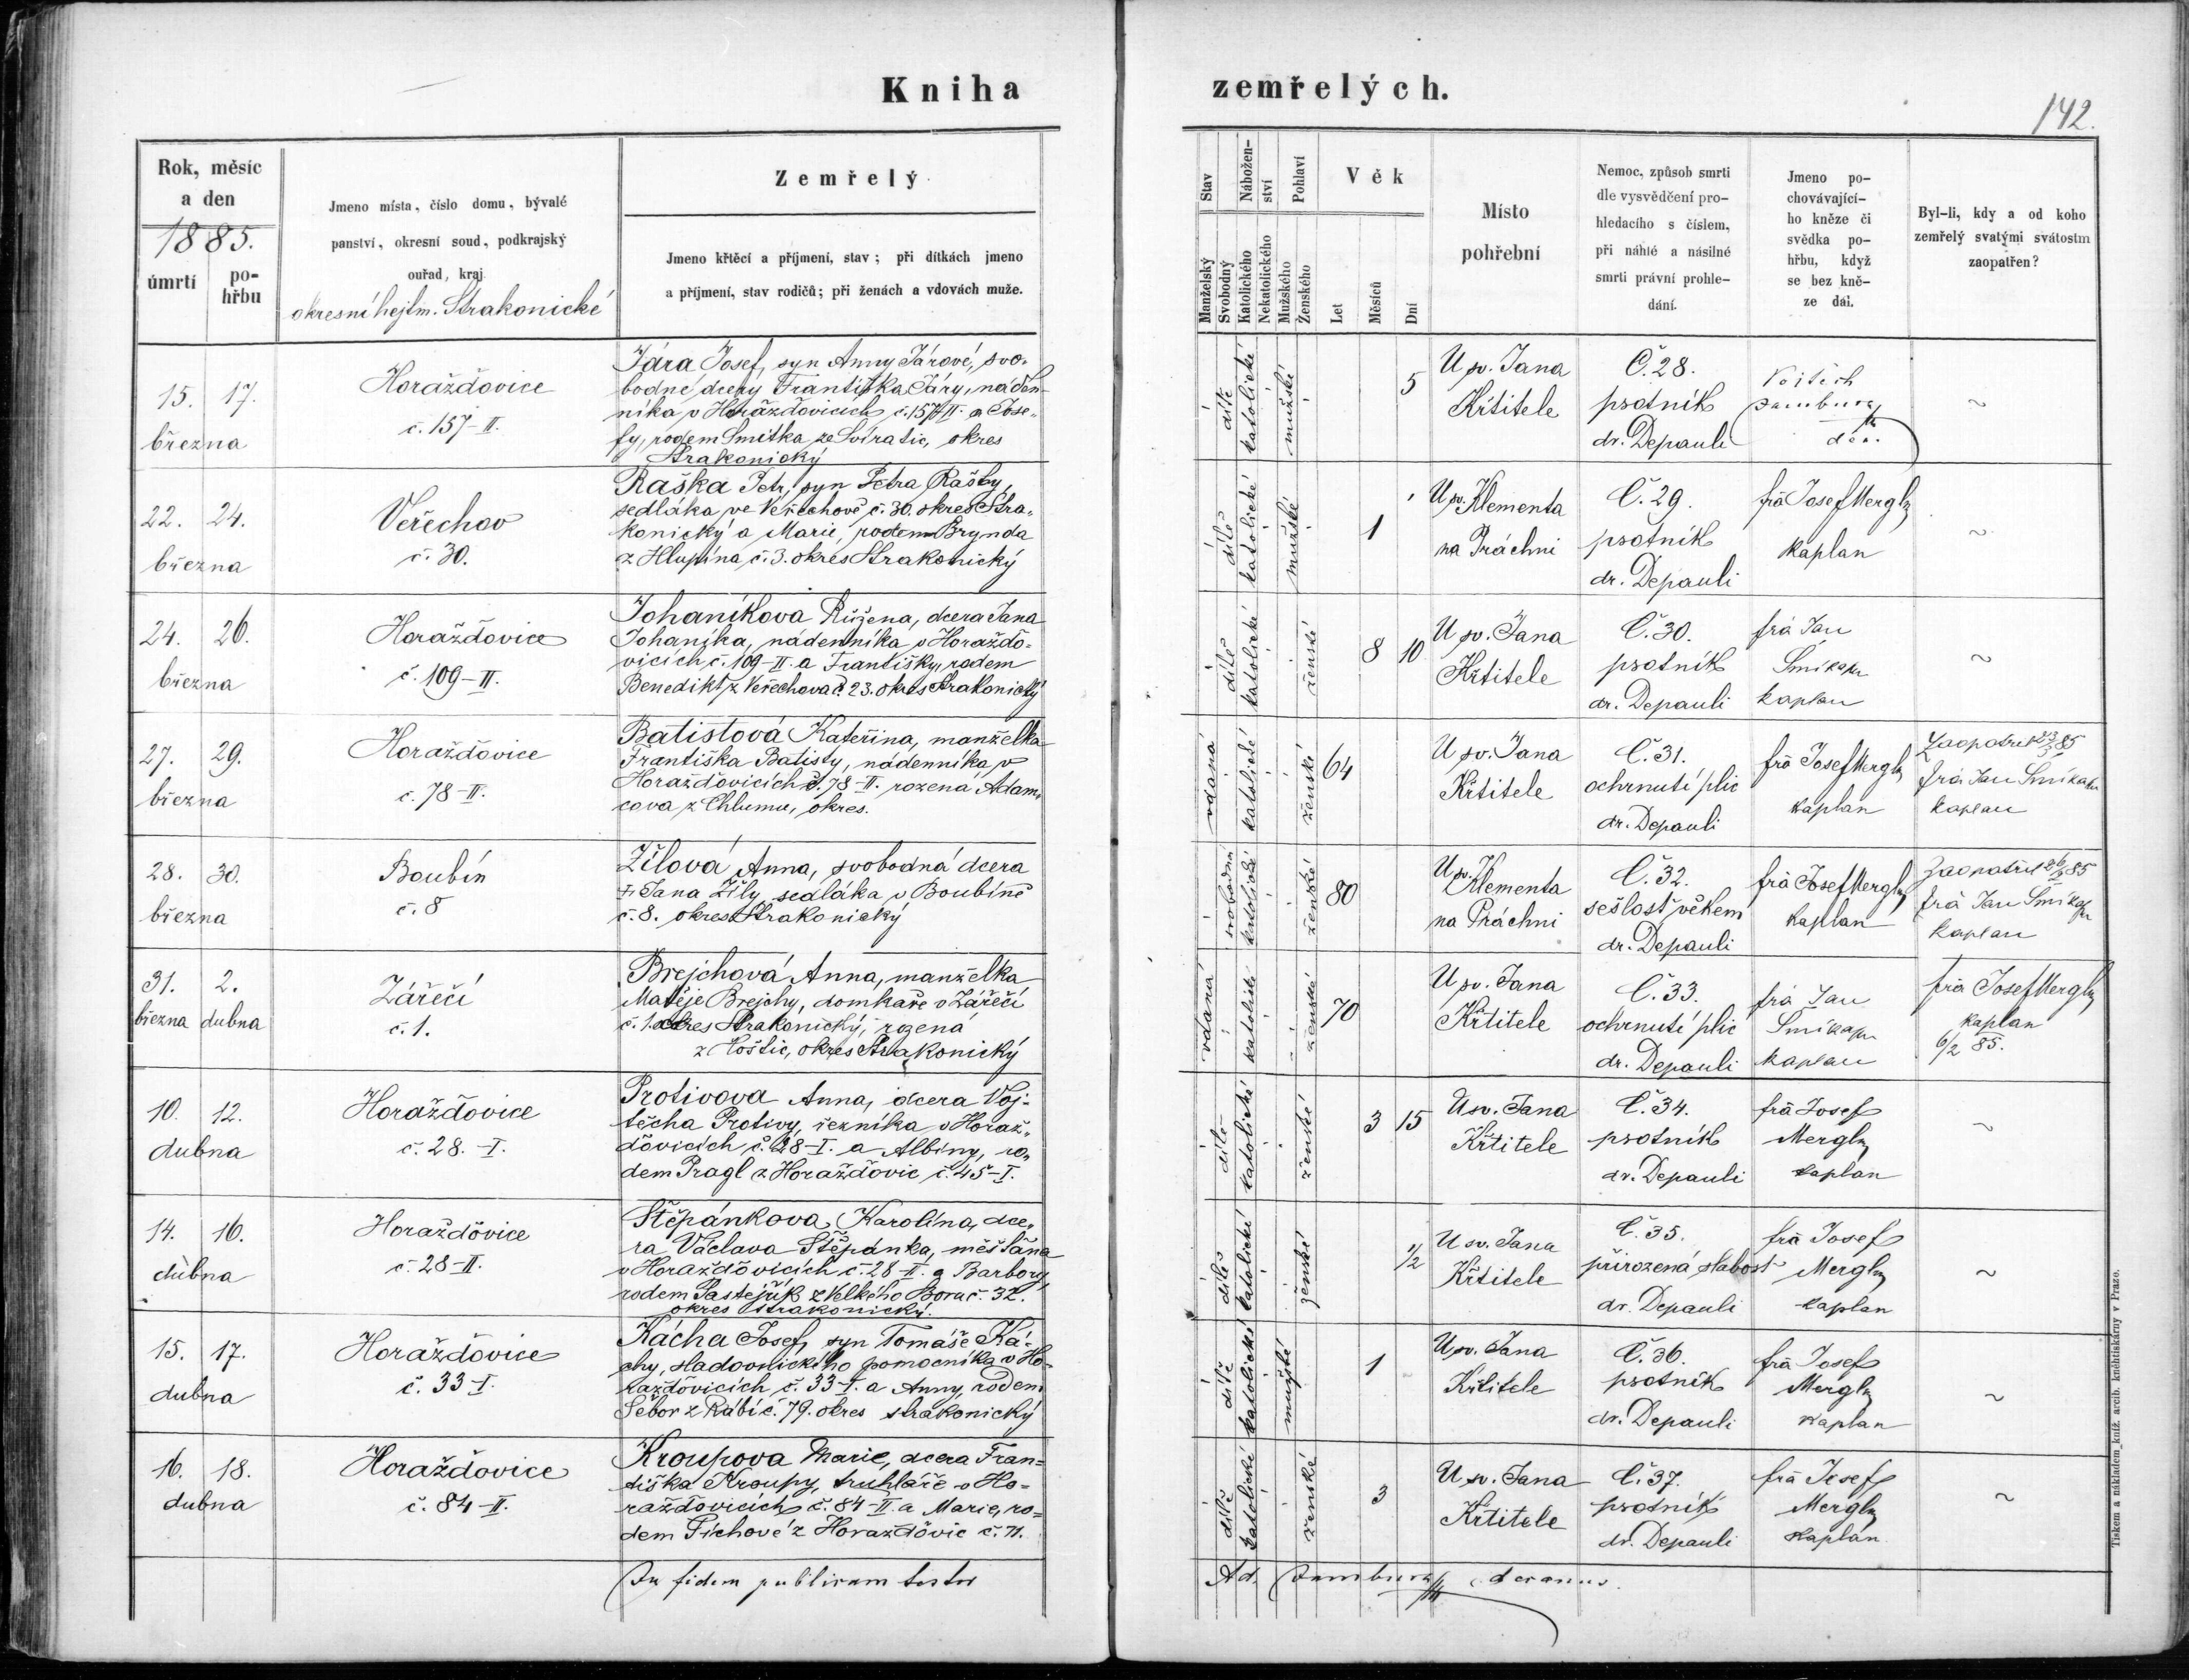 Kniha zemřelých.
142.
Rok, měsíc
a den
1885.
úmrtí
po-
hřbu
Jmeno místa, číslo domu, bývalé
panství, okresní soud, podkrajský
ouřad, kraj.
okresní hejtm. Strakonické
Zemřelý
Jmeno křtěcí a příjmení, stav; při dítkách jmeno
a příjmení, stav rodičů; při ženách a vdovách muže.
Stav
Manželský
Svobodný
Nábožen-
ství
Katolického
Nekatolického
Pohlaví
Mužského
Ženského
Věk
Let
Měsíců
Dní
Místo
pohřební
Nemoc, způsob smrti
dle vysvědčení pro-
hledacího s číslem,
při náhlé a násilné
smrti právní prohle-
dání.
Jmeno po-
chovávající-
ho kněze či
svědka po-
hřbu, když
se bez kně-
ze dál.
Byl-li, kdy a od koho
zemřelý svatými svátostmi
zaopatřen?
15. 17.
března
Horažďovice
č. 157-II.
Jára Josef, syn Anny Járové, svo-
bodné dcery Františka Járy, náden-
níka v Horažďovicích č. 157-II. a Jose-
fy, rodem Smitka ze Svíratic, okres
Strakonický
dítě
katolické
mužské
5
U sv. Jana
Křtitele
Č. 28.
psotník
dr. Depauli
Vojtěch
Jambura
děk.
~
22. 24.
března
Veřechov
č. 30.
Raška Petr, syn Petra Rašky,
sedláka ve Veřechově č. 30. okres Stra-
konický a Marie, rodem Brynda
z Hlupína č. 3. okres Strakonický
dítě
katolické
mužské
1
U sv. Klementa
na Práchni
Č. 29.
psotník
dr. Depauli
frá Josef Mergl
kaplan
~
24. 26.
března
Horažďovice
č. 109-II.
Johaníkova Růžena, dcera Jana
Johaníka, nádenníka v Horažďo-
vicích č. 109-II. a Františky, rodem
Benedikt z Veřechova č. 23. okres Strakonický
dítě
katolické
ženské
8 10
U sv. Jana
Křtitele
Č. 30.
psotník
dr. Depauli
frá Jan
kaplan
~
27. 29.
března
Horažďovice
č. 78-II.
Batistová Kateřina, manželka
Františka Batisty, nádenníka v
Horažďovicích č. 78-II. rozená Adam-
cova z Chlumu, okres.
vdaná
katolické
ženské
64
U sv. Jana
Křtitele
Č. 31.
ochrnutí plic
dr. Depauli
frá Josef Mergl
kaplan
frá Jan
kaplan
28. 30.
března
Boubín
č. 8
Žílová Anna, svobodná dcera
† Jana Žíly, sedláka v Boubíně
č. 8. okres Strakonický
svobodná
katolické
ženské
80
U sv. Klementa
na Práchni
Č. 32.
sešlost věkem
dr. Depauli
frá Josef Mergl
kaplan
frá Jan
kaplan
31. 2.
března dubna
Zářečí
č. 1.
Brejchová Anna, manželka
Matěje Brejchy, domkáře v Zářečí
č. 1. okres Strakonický, rozená
z Hoštic, okres Strakonický
vdaná
katolické
ženské
70
U sv. Jana
Křtitele
Č. 33.
ochrnutí plic
dr. Depauli
frá Jan
kaplan
frá Josef Mergl
kaplan
6/2 85.
10. 12.
dubna
Horažďovice
č. 28.-I.
Protivova Anna, dcera Voj-
těcha Protivy, řezníka v Horaž-
ďovicích č. 28-I. a Albíny, ro-
dem Pragl z Horažďovic č. 45-I.
dítě
katolické
ženské
3 15
U sv. Jana
Křtitele
Č. 34.
psotník
dr. Depauli
frá Josef
Mergl
kaplan
~
14. 16.
dubna
Horažďovice
č. 28-II.
Štěpánkova Karolína, dce-
ra Václava Štěpánka, měšťana
v Horažďovicích č. 28-II. a Barbory,
rodem Pastejřík z Velkého Boru č. 32.
okres strakonický.
dítě
katolické
ženské
1/2
U sv. Jana
Křtitele
Č. 35.
přirozená slabost
dr. Depauli
frá Josef
Mergl
kaplan
~
15. 17.
dubna
Horažďovice
č. 33-I.
Kácha Josef, syn Tomáše Ká-
chy, sladovnického pomocníka v Ho-
ražďovicích č. 33-I. a Anny, rodem
Šebor z Rábí č. 79. okres strakonický
dítě
katolické
mužské
1
U sv. Jana
Křtitele
Č. 36.
psotník
dr. Depauli
frá Josef
Mergl
kaplan
~
16. 18.
dubna
Horažďovice
č. 84-II.
Kroupova Marie, dcera Fran-
tiška Kroupy, truhláře v Ho-
ražďovicích č. 84-II. a Marie, ro-
dem Píchové z Horažďovic č. 71.
dítě
katolické
ženské
3
U sv. Jana
Křtitele
Č. 37.
psotník
dr. Depauli
frá Josef
Mergl
kaplan
~
In fidem publicam testor
Ad. Jambura decanus.
Tiskem a nákladem kníž. arcib. kněhtiskárny v Praze.